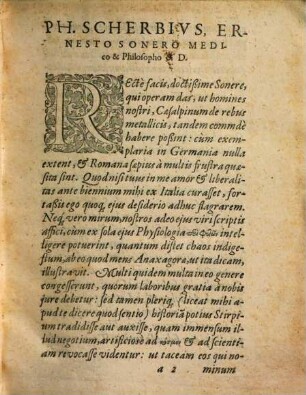 PH. SCHERBIVS, ER-
NESTO SONERO MEDI-
co & Philosopho D.
REctè facis, doctißime Sonere,
qui operam das, ut homines
nostri, Cæsalpinum de rebus
metallicis, tandem commodè
habere poßint: cum exem-
plaria in Germania nulla
extent, & Romana sæpius à multis frustra quæ-
sita sint. Quod nisi tuus in me amor & liberali-
tas ante biennium mihi ex Italia curasset, for-
taßis ego quoq, ejus desiderio adhuc flagrarem.
Neq, vero mirum, nostros adeo ejus viri scriptis
affici, cum ex sola ejus Physiologia intel-
ligere potuerint, quantum distet chaos indige-
stum, ab eo quod mens Anaxagoræ, ut ita dicam,
illustravit. Multi quidem multa in eo genere
congesserunt, quorum laboribus gratia à nobis
jure debetur: sed tamen pleriq, (liceat mihi a-
pud te dicere quod sentio) historiā potius Stirpi-
um tradidisse aut auxisse, quam immensum il-
lud negotium, artificiose ad & ad scienti-
am revocasse videntur: ut taceam eos qui no-
a 2 minum